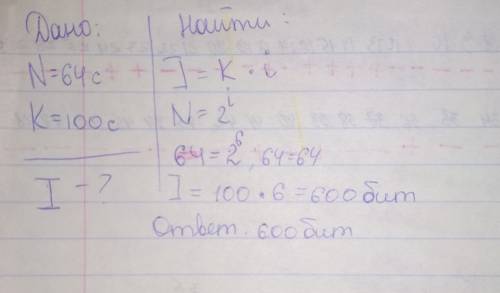 Дано:
N=64 с
K=100 с
I - ?
Найти:
I = K · i
N = 2^i
64 = 2^6, 64=64
I = 100 · 6 = 600 бит
Ответ. 600 бит